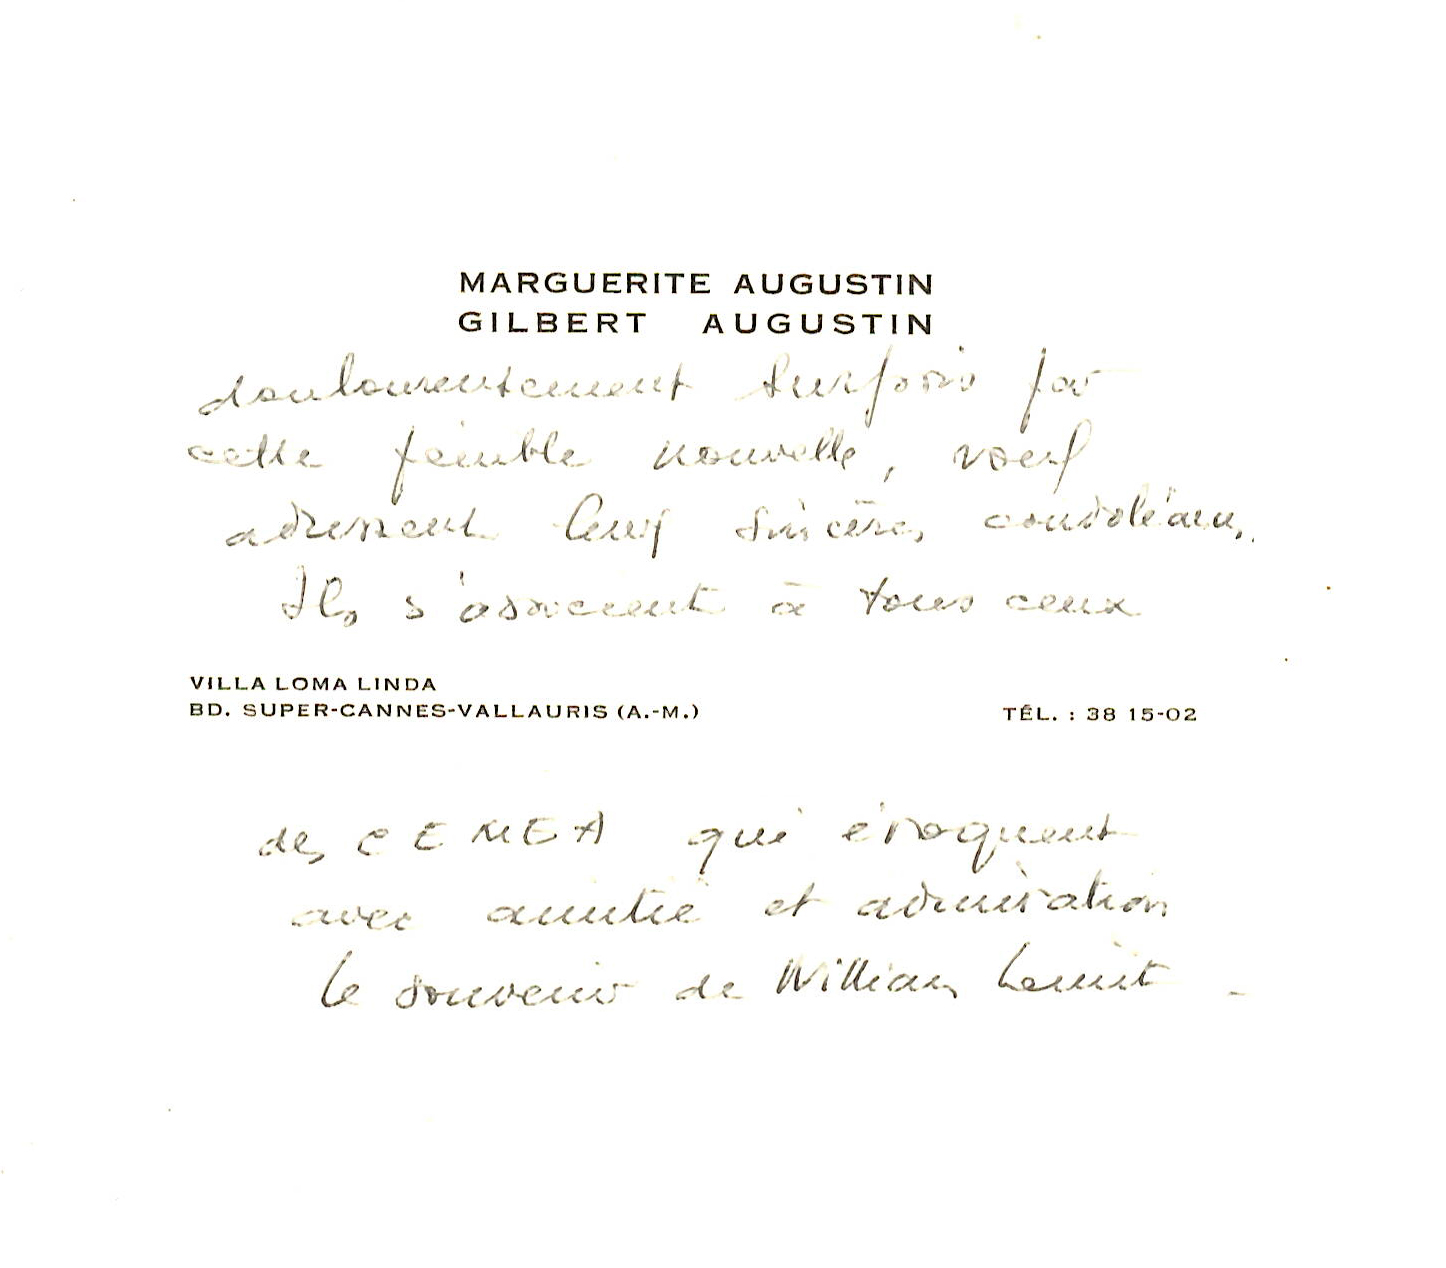 MARGUERITE AUGUSTIN
GILBERT AUGUSTIN
douloureusement surpris par
cette pénible nouvelle, vous
adressent leurs sincères condoléances.
Ils s'associent à tous ceux
VILLA LOMA LINDA
BD. SUPER-CANNES-VALLAURIS (A.-M.)
TÉL. : 38 15-02
des CEMEA qui évoquent
avec amitié et admiration
le souvenir de William Lemit -